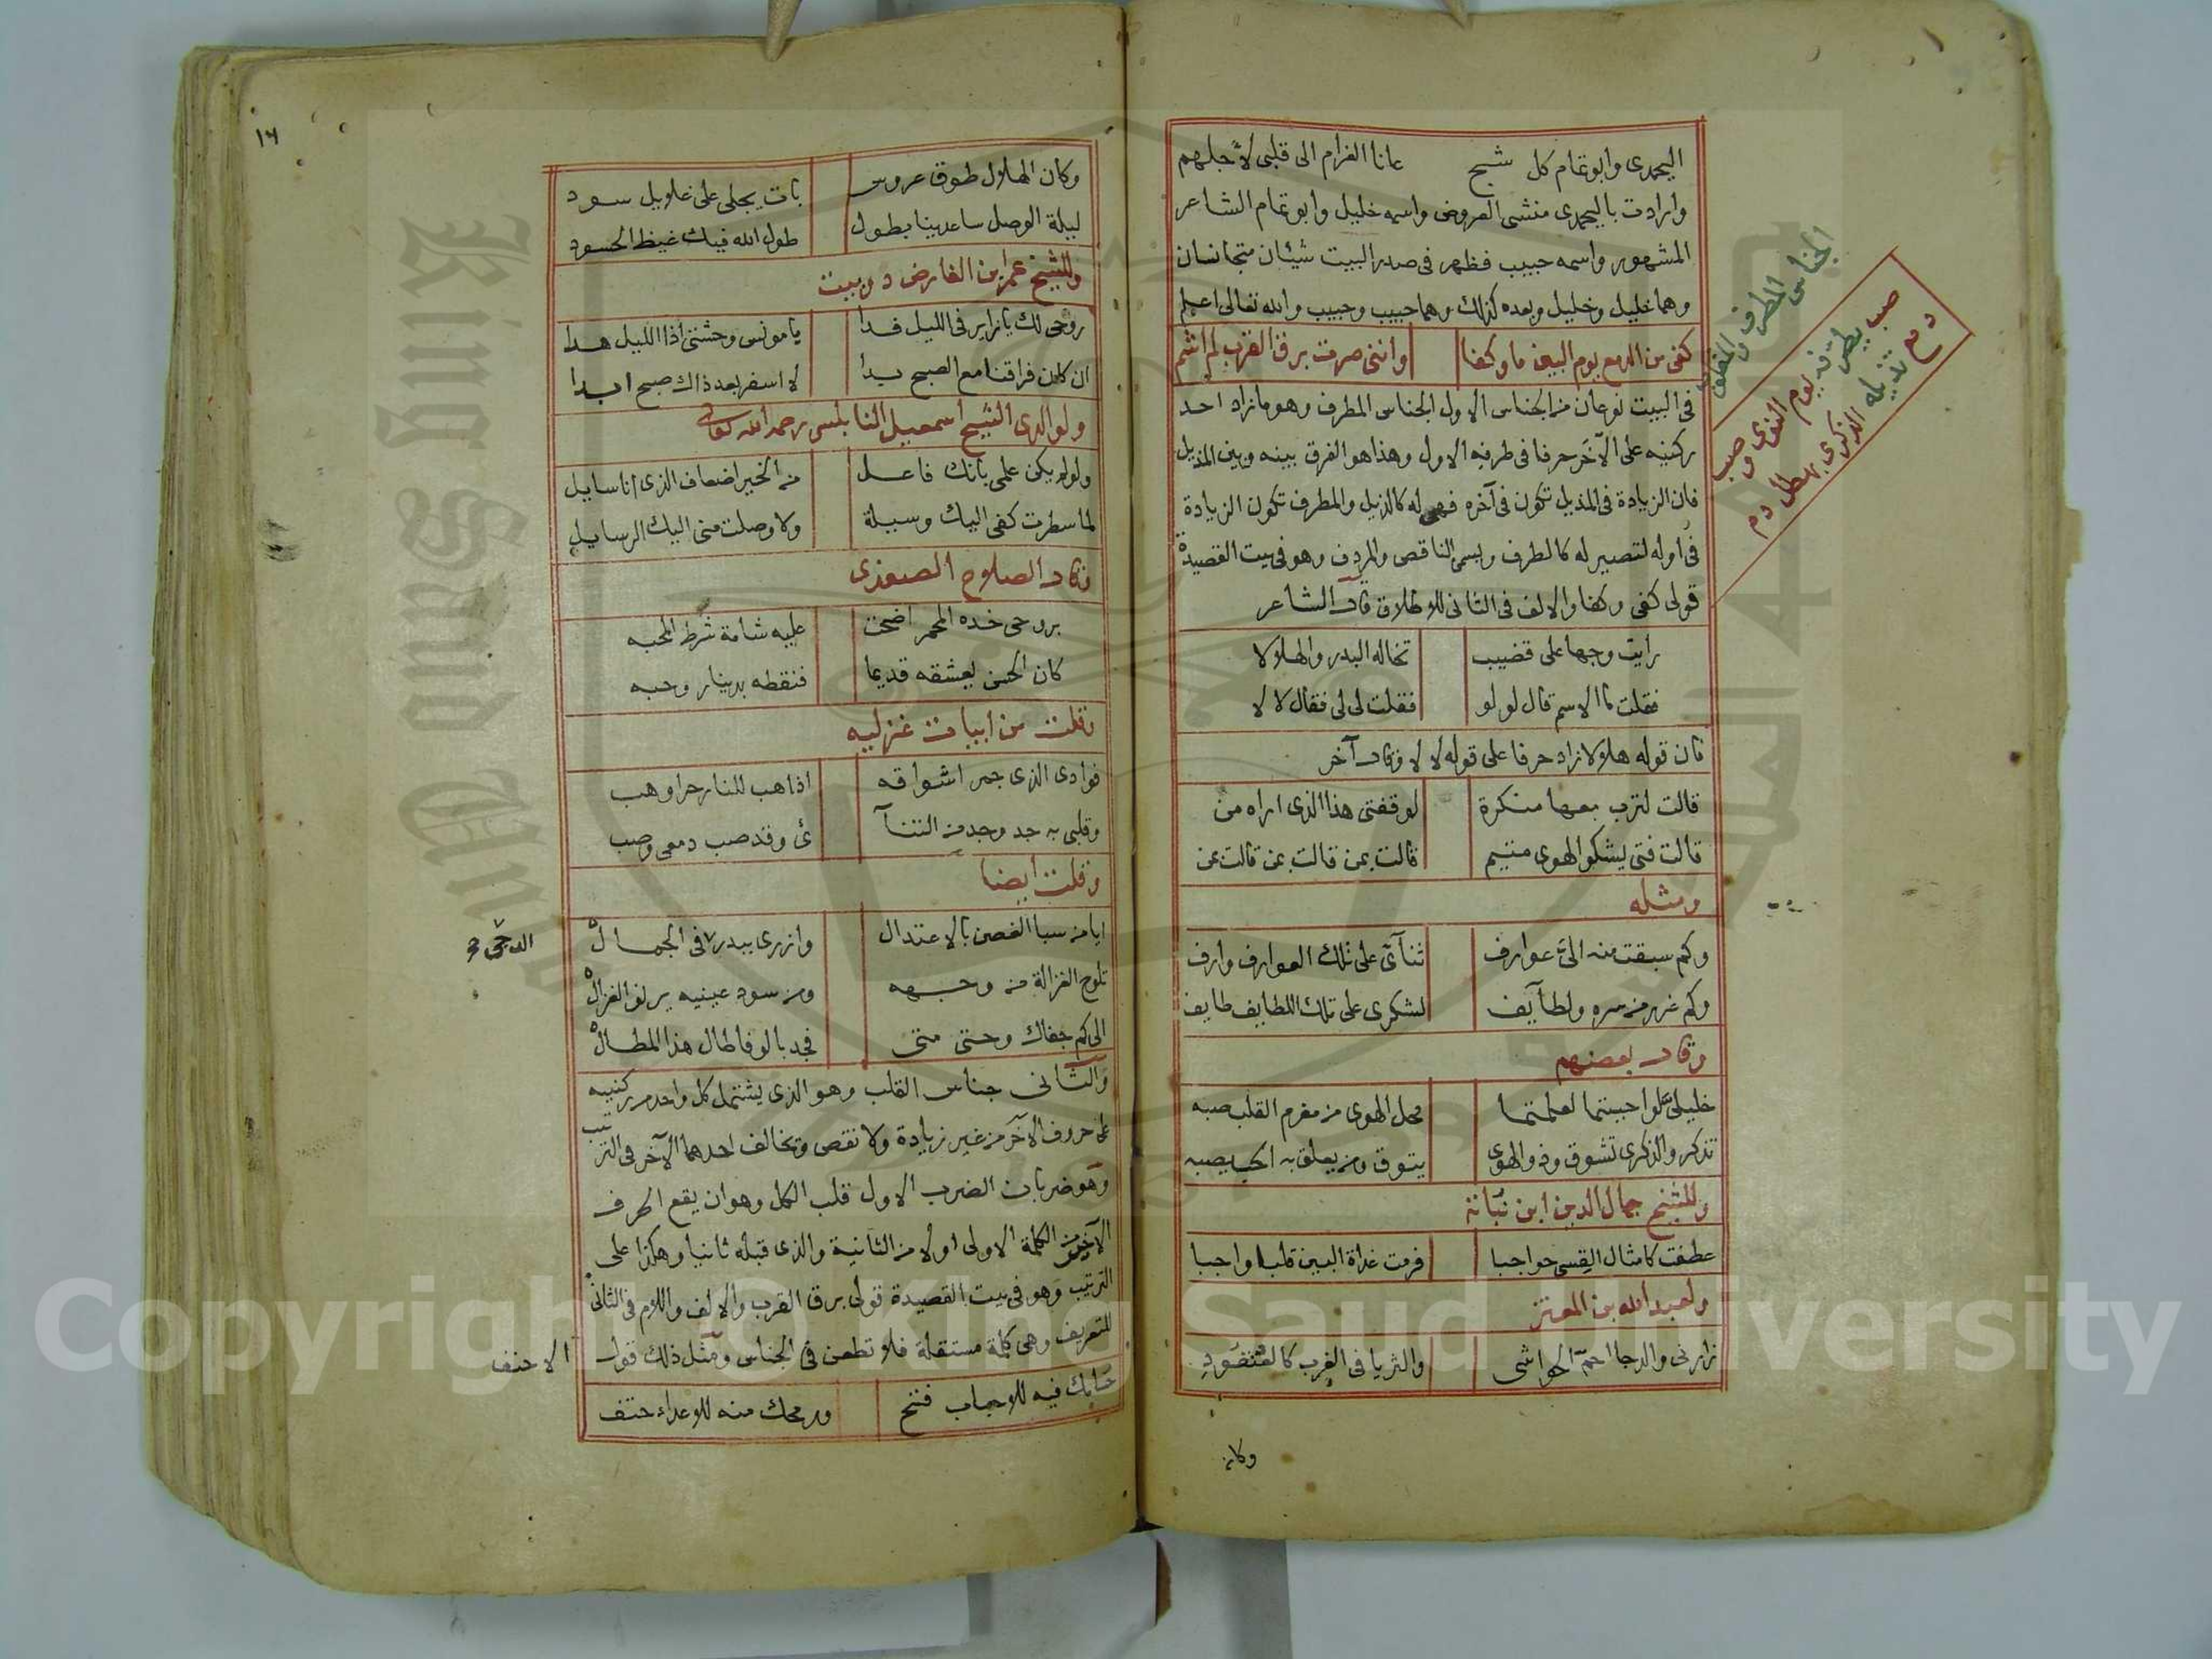 اليحمدى وابو تمام كل شبح عانا الغرام الى قلبى لأجلهم
وارادت باليحمدى منشى العروض واسمه خليل وابو تمام الشاعر
المشهور واسمه حبيب فظهر فى صدر البيت شيئان متجانسان
وهما خليل وخليل وبعده كذلك وهما حبيب وحبيب والله تعالى اعلم
كفى من الدمع يوم البين ما وكفا واننى صرت برق القرب لم اشم
فى البيت نوعان من الجناس الاول الجناس المطرف وهو ما زاد احد
ركنيه على الآخر حرفا فى طرفه الاول وهذا هو الفرق بينه وبين المذيل
فان الزيادة فى المذيل تكون فى آخره فهى له كالذيل والمطرف تكون الزيادة
فى اوله لتصير له كالطرف ويسمى الناقص والمردف وهو فى بيت القصيدة
قولى كفى وكفا والالف فى الثانى للاطلاق قال الشاعر
رايت وجها على قضيب تخاله البدر والهلالا
فقلت ما الاسم قال لولو فقلت لى لى فقال لا لا
فان قوله هلالا زاد حرفا على قوله لا لا وقال آخر
قالت لترب معها منكرة لوقفتى هذا الذى اراه من
قالت فتى يشكو الهوى متيم قالت بمن قالت بمن قالت بمن
ومثله
وكم سبقت منه الىّ عوارف ثنآئى على تلك العوارف وارف
وكم غرر من بره ولطآيف لشكرى على تلك اللطايف طايف
وقال بعضهم
خليلىّ لو احببتما لعلمتما محل الهوى من مغرم القلب صبه
تذكر والذكرى تشوق وذو الهوى يتوق ومن يعلق به الحب يصبه
وللشيخ جمال الدين ابن نباتة
عطفت كامثال القسى حواجبا فرمت غداة البين قلبا واجبا
ولعبد الله بن المعتز
زارنى والدجا احمّ الحواشى والثريا فى الغرب كالعنقود
وكان
الجناس المطرف والمقلوب
صب يطرفه يوم النوى وصب
دمع تذيله الذكرى بهطل دم
١٦
وكان الهلال طوق عروس بات يجلى على غلايل سود
ليلة الوصل ساعدينا بطول طول الله فيك غيظ الحسود
وللشيخ عمر ابن الفارض دوبيت
روحى لك يا زاير فى الليل فدا يا مونس وحشتى اذا الليل هدا
ان كان فراقنا مع الصبح بدا لا اسفر بعد ذاك صبح ابدا
ولوالدى الشيخ اسمعيل النابلسى رحمه الله تعالى
ولو لم يكن علمى بانك فاعل من الخير اضعاف الذى انا سايل
لما سطرت كفى اليك وسيلة ولا وصلت منى اليك الرسايل
وقال الصلاح الصفدى
بروحى خده المحمر اضحت عليه شامة شرط المحبه
كان الحسن يعشقه قديما فنقطه بدينار وحبه
وقلت من ابيات غزليه
فوادى الذى جمر اشواقه اذا هب للنار حر اوهب
وقلبى به جد وجد من التنآ ئى وقد صب دمعى وصب
وقلت ايضا
ايا من سبا الغصن بالاعتدال وازرى ببدر فى الجمال
الدجى
تلوح الغزالة من وجهه ومن سود عينيه يرنو الغزال
الى كم جفاك وحتى متى فجد بالوفا طال هذا المطال
والثانى جناس القلب وهو الذى يشتمل كل واحد من ركنيه
على حروف الآخر من غير زيادة ولا نقص وتخالف احدهما الآخر فى الترتيب
وهو ضربان الضرب الاول قلب الكل وهو ان يقع الحرف
الآخر من الكلمة الاولى اولا من الثانية والذى قبله ثانيا وهكذا على
الترتيب وهو فى بيت القصيدة قولى برق القرب والالف واللام فى الثانى
للتعريف وهى كلمة مستقلة فلا تطعن فى الجناس ومثل ذلك قول الاحنف
حسامك فيه للاحباب فتح ورمحك منه للاعداء حتف